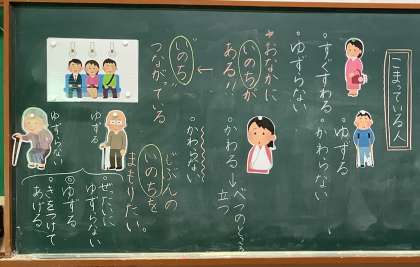 こまっている人
・ゆずる
・かわらない
・すぐすわる
・ゆずらない
おなかに
いのちが
ある!!
・かわる→べつのところ
立つ
・かわらない
←
"いのち"
つながっている
じぶんの
いのちを
まもりたい。
ゆずる
ゆずらない
・ぜったいに
ゆずらない
・ゆずる
・きをつけて
あげる